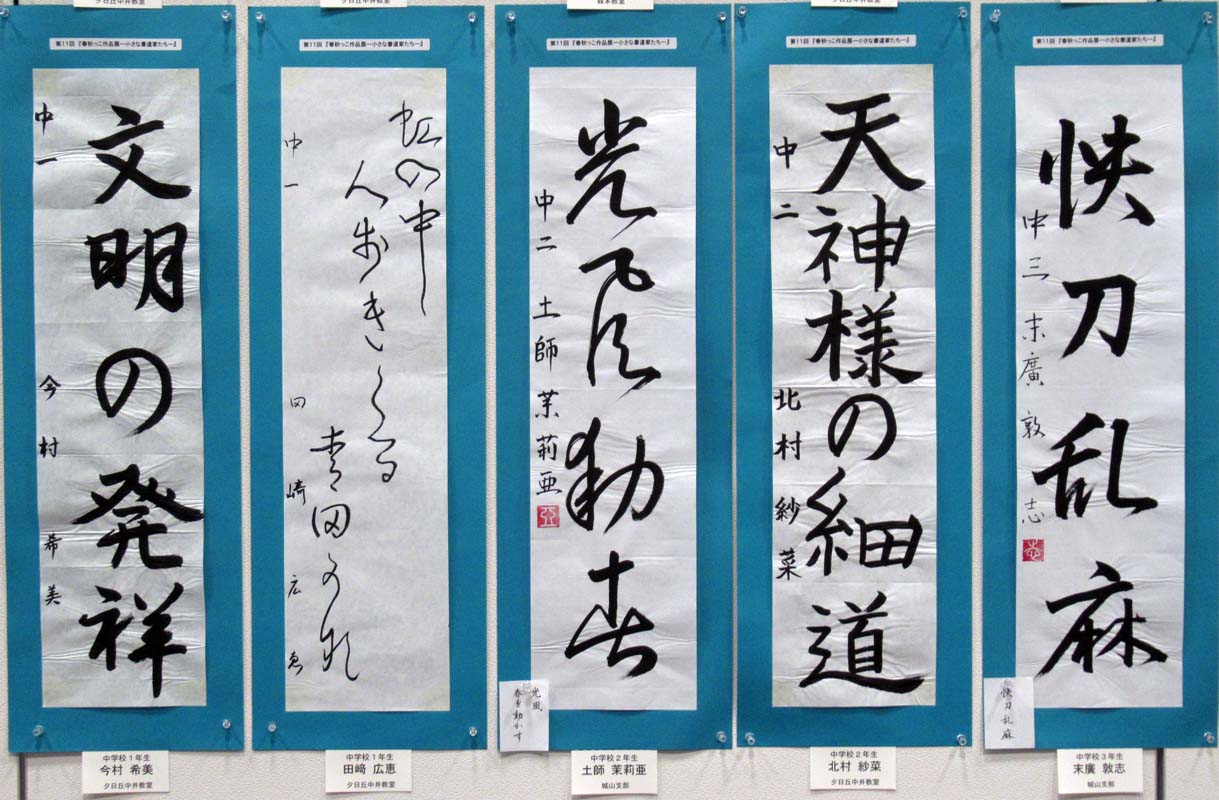 夕日丘中井教室
第11回『春秋っこ作品展―小さな書道家たち―』
文明の発祥
中一 今村希美
中学校1年生
今村 希美
夕日丘中井教室
第11回『春秋っこ作品展―小さな書道家たち―』
虹の中
人歩きくる
青田かな
中一 田崎広恵
中学校1年生
田﨑 広恵
夕日丘中井教室
森本教室
第11回『春秋っこ作品展―小さな書道家たち―』
光風動春
中二 土師茉莉亜
光風
春を動かす
中学校2年生
土師 茉莉亜
城山支部
第11回『春秋っこ作品展―小さな書道家たち―』
天神様の細道
中二 北村紗菜
中学校2年生
北村 紗菜
夕日丘中井教室
第11回『春秋っこ作品展―小さな書道家たち―』
快刀乱麻
中三 末廣敦志
快刀乱麻
中学校3年生
末廣 敦志
城山支部